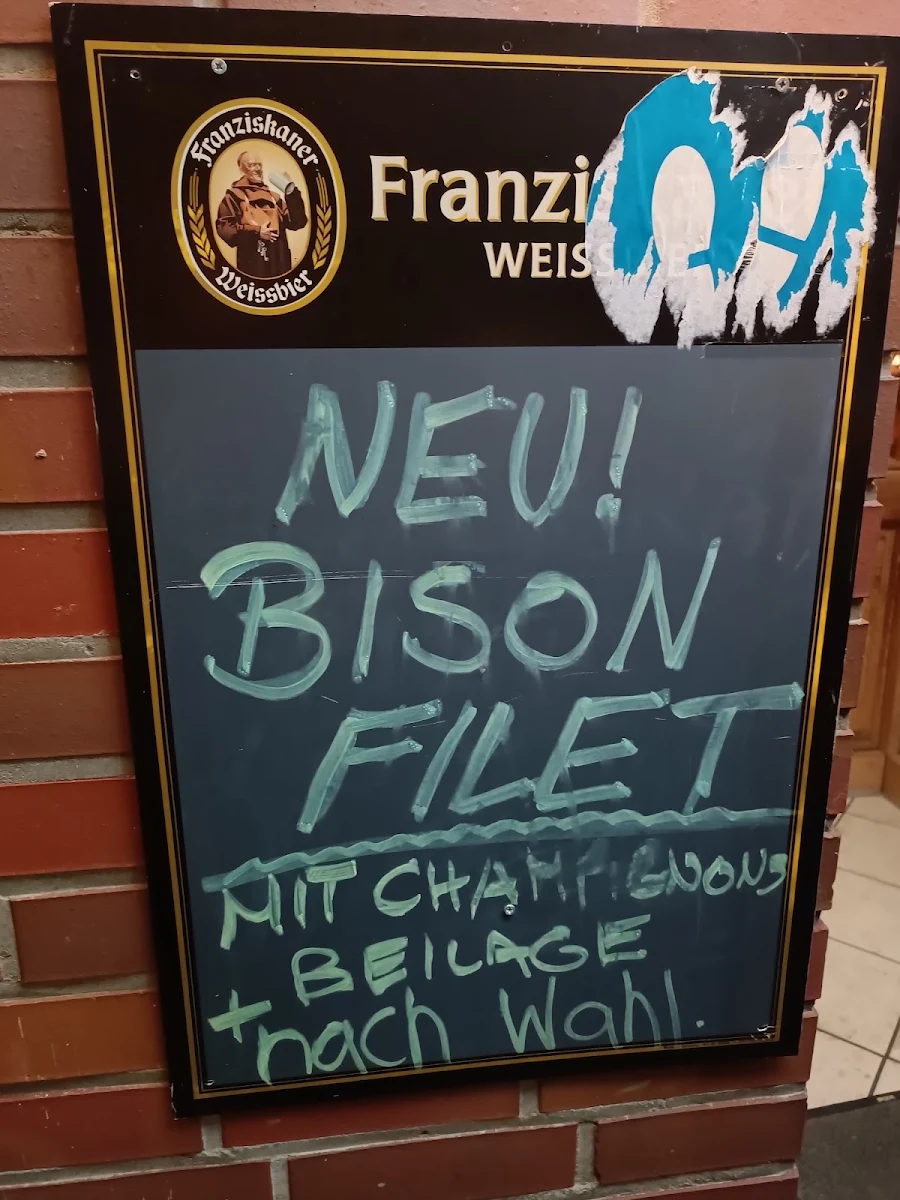 Franziskaner
Weissbier
Franzi
WEISS
NEU!
BISON
FILET
MIT CHAMPIGNONS
+ BEILAGE
nach Wahl.